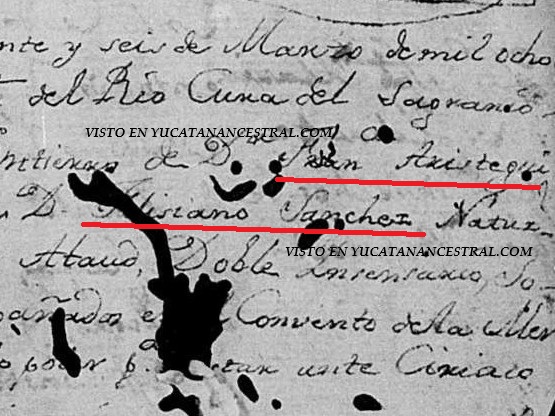 nte y seis de Marzo de mil ocho
del Rio Cura del Sagrario
VISTO EN YUCATANANCESTRAL.COM
de D. Juan Aristegui
D. Sanchez Natur-
VISTO EN YUCATANANCESTRAL.COM
Ataud, Doble Insensario, So-
pañados el Convento de la Mer
por p. ante Ciriaco